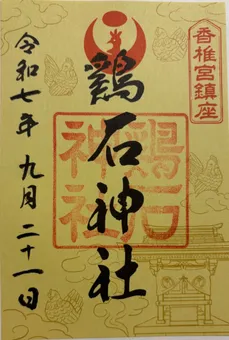 香椎宮鎮座
鶏石神社
鶏石
神社
令和七年 九月 二十一日